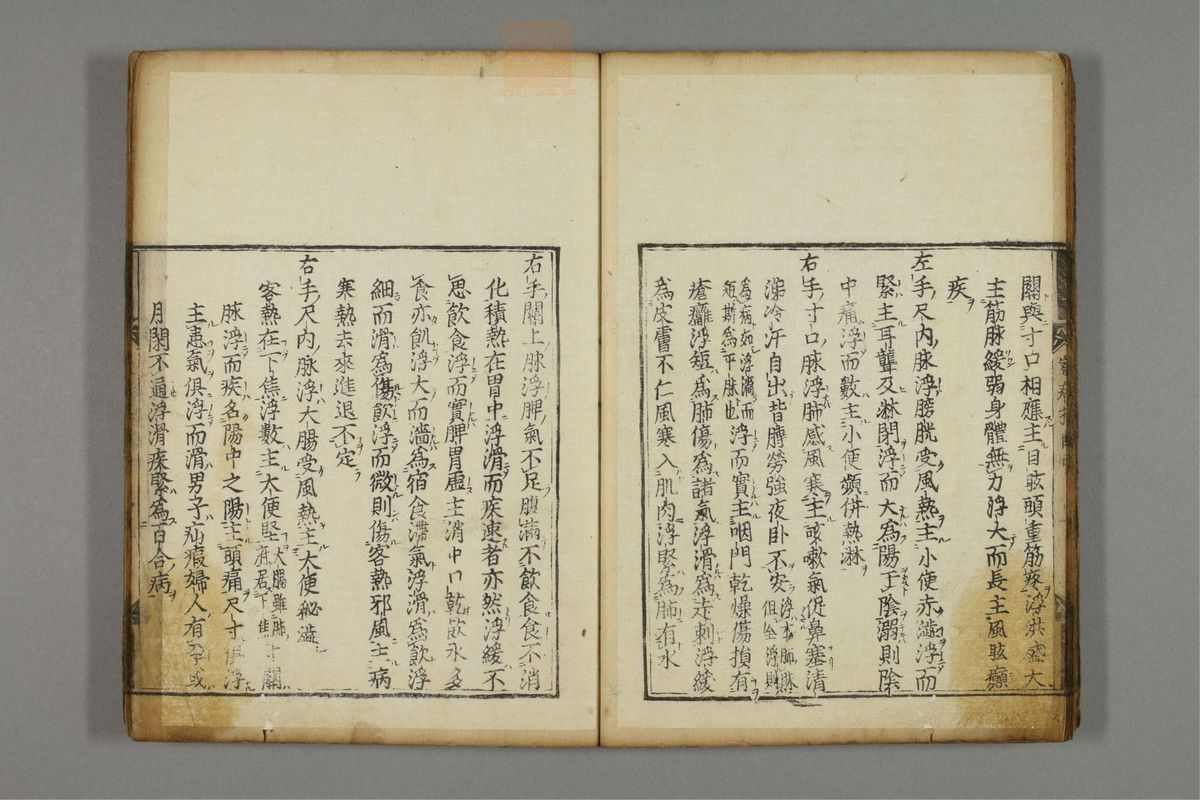 關與寸口相應主目眩頭重筋疼浮洪盛大
主筋脉緩弱身體無力浮大而長主風眩癲
疾
左手尺内脉浮膀胱受風熱主小便赤澁浮而
緊主耳聾及淋閉浮而大為陽干陰溺則陰
中痛浮而數主小便頻併熱淋
右手寸口脉浮肺感風寒主咳嗽氣促鼻塞清
涕冷汗自出背膊勞強夜卧不安浮本肺脉但全浮則
為病如浮濇而短斯為平脉也浮而實主咽門乾燥傷損有
瘡癰浮短為肺傷為諸氣浮滑為走刺浮緩
為皮膚不仁風寒入肌肉浮緊為肺有水
右手關上脉浮脾氣不足腹滿不飲食食不消
化積熱在胃中浮滑而疾速者亦然浮緩不
思飲食浮而實脾胃虛主消中口乾飲水多
食亦飢浮大而濇為宿食滯氣浮滑為飲浮
細而滑為傷飲浮而微則傷客熱邪風主病
寒熱去來進退不定
右手尺内脉浮大腸受風熱主大便秘澁
客熱在下焦浮數主大便堅大腸雖肺府居下焦寸關
脉浮而疾名陽中之陽主頭痛尺寸俱浮
主患氣俱浮而滑男子疝瘕婦人有孕或
月閉不通浮滑疾緊為百合病